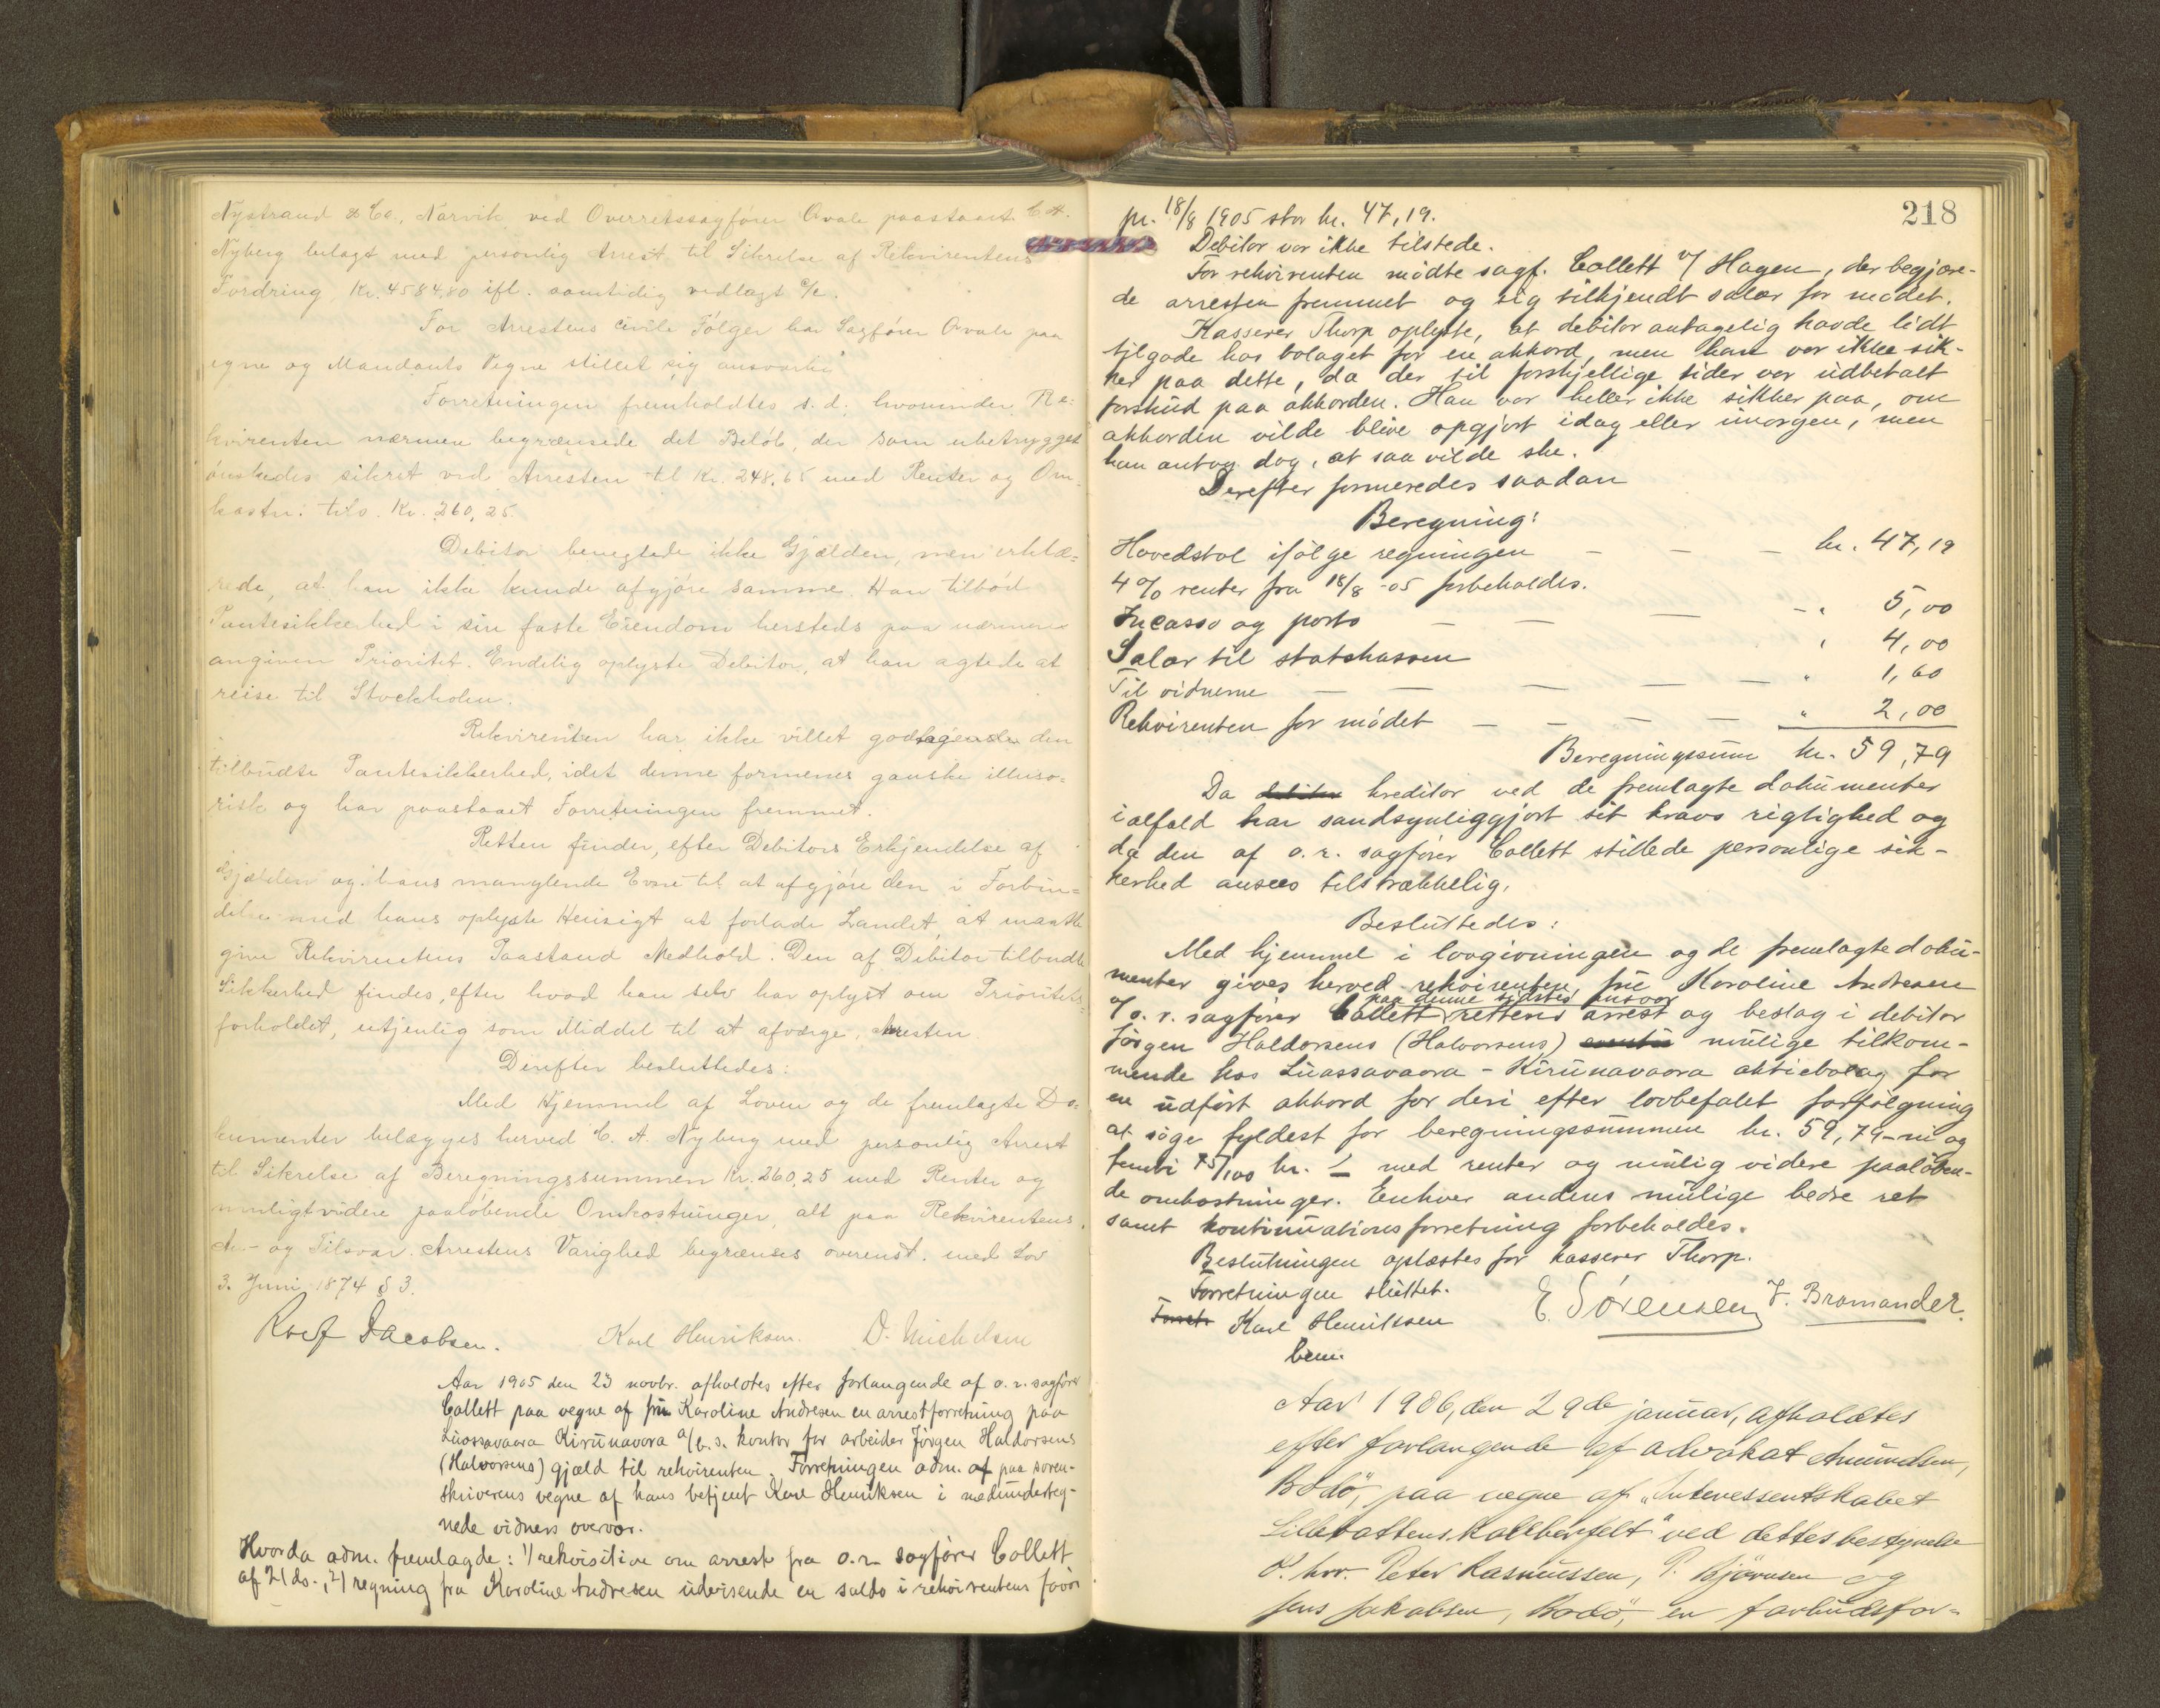 Nystrand & Co., Narvik ved Overretssagfører Qvale paastaaet C. A.
Nyberg belagt med personlig Arrest til Sikrelse af Rekvirentens
Fordring Kr. 4584,80 ifl. samtidig vedlagt c/c.
For Arrestens civile Følger har Sagfører Qvale paa
egne og Mandants Vegne stillet sig ansvarlig
Forretningen fremholdtes s. d. hvorunder Re-
kvirenten nærmere begrænsede det Beløb, der som ubetrygget
ønskedes sikret ved Arresten til Kr. 248,65 med Renter og Om-
kostn: tils. Kr. 260,25.
Debitor benegtede ikke Gjælden, men erklæ-
rede, at han ikke kunde afgjøre samme. Han tilbød
Pantesikkerhed i sin faste Eiendom hersteds paa nærmere
angiven Prioritet. Endelig oplyste Debitor, at han agtede at
reise til Stockholm.
Rekvirenten har ikke villet godtage den
tilbudte Pantesikkerhed, idet denne formenes ganske illuso-
risk og har paastaaet Forretningen fremmet.
Retten finder, efter Debitors Erkjendelse af
Gjælden og hans manglende Evne til at afgjøre den i Forbin-
delse med hans oplyste Hensigt at forlade Landet, at maatte
give Rekvirentens Paastand Medhold. Den af Debitor tilbudte
Sikkerhed findes, efter hvad han selv har oplyst om Prioritets-
forholdet, utjenlig som Middel til at afværge Arresten
Derefter besluttedes:
Med Hjemmel af Loven og de fremlagte Do-
kumenter belægges herved C. A. Nyberg med personlig Arrest
til Sikrelse af Beregningssummen Kr. 260,25 med Renter og
muligt videre paaløbende Omkostninger, alt paa Rekvirentens
An- og Tilsvar. Arrestens Varighed begrænses overenst. med Lov
3. Juni 1874 § 3.
Rolf Jacobsen. Karl Henriksen. D. Michelsen
Aar 1905 den 23 novbr. afholdtes efter forlangende af o. r. sagfører
Collett paa vegne af fru Karoline Andresen en arrestforretning paa
Luossavaara Kirunavara a/b.s. kontor for arbeider Jørgen Haldorsens
(Halvorsens) gjæld til rekvirenten. Forretningen adm. af paa soren-
skriverens vegne af hans betjent Karl Henriksen i nedunderteg-
nede vidners overvær.
Hvorda adm. fremlagde: 1) rekvisition om arrest fra o. r. sagfører Collett
af 21 ds., 2) regning fra Karoline Andresen udvisende en saldo i rekvirentens favør
218
pr. 18/8 1905 stor kr. 47,19.
Debitor var ikke tilstede.
For rekvirenten mødte sagf. Collett v/ Hagen, der begjære-
de arresten fremmet og sig tilkjendt salær for mødet.
Kasserer Thorp oplyste, at debitor antagelig havde lidt
tilgode hos bolaget for en akkord, men han var ikke sik-
ker paa dette, da der til forskjellige tider var udbetalt
forskud paa akkorden. Han var heller ikke sikker paa, om
akkorden vilde blive opgjort idag eller imorgen, men
han antog dog, at saa vilde ske.
Derefter formeredes saadan
Beregning:
Hovedstol ifølge regningen — — — kr. 47,19
4 % renter fra 18/8 -05 forbeholdes.
Incasso og porto — — — - " 5,00
Salær til statskassen " 4,00
Til vidnerne — — — — — " 1,60
Rekvirenten for mødet — — — — " 2,00
Beregningssum kr. 59,79
Da debitor kreditor ved de fremlagte dokumenter
ialfald har sandsynliggjort sit kravs rigtighed og
da den af o. r. sagfører Collett stillede personlige sik-
kerhed ansees tilstrækkelig,
Besluttedes:
Med hjemmel i lovgivningen og de fremlagte doku-
menter gives herved rekvirenten, fru Karoline Andresen
paa denne sidstes ansvar
v/ o. r. sagfører Collett rettens arrest og beslag i debitor
Jørgen Haldorsens (Halvorsens) mulige tilkom-
mende hos Luassavaara - Kirunavaara aktiebolag for
en udført akkord for deri efter lovbefalet forfølgning
at søge fyldest for beregningssummen kr. 59,79 - ni og
femti 79/100 kr. - med renter og mulig videre paaløben-
de omkostninger. Enhver andens mulige bedre ret
samt kontinuationsforretning forbeholdes.
Beslutningen oplæstes for kasserer Thorp.
Forretningen sluttet.
Forretn Karl Henriksen E. Sørensen J. Bromander.
bem.
Aar 1906, den 29de januar, afholdtes
efter forlangende af advokat Amundsen,
Bodö, paa vegne af "Interessentskabet
ved dettes bestyrelse
Peter Rasmussen, P. Björnsen og
Jens Jakobsen, Bodö, en forbudsfor-